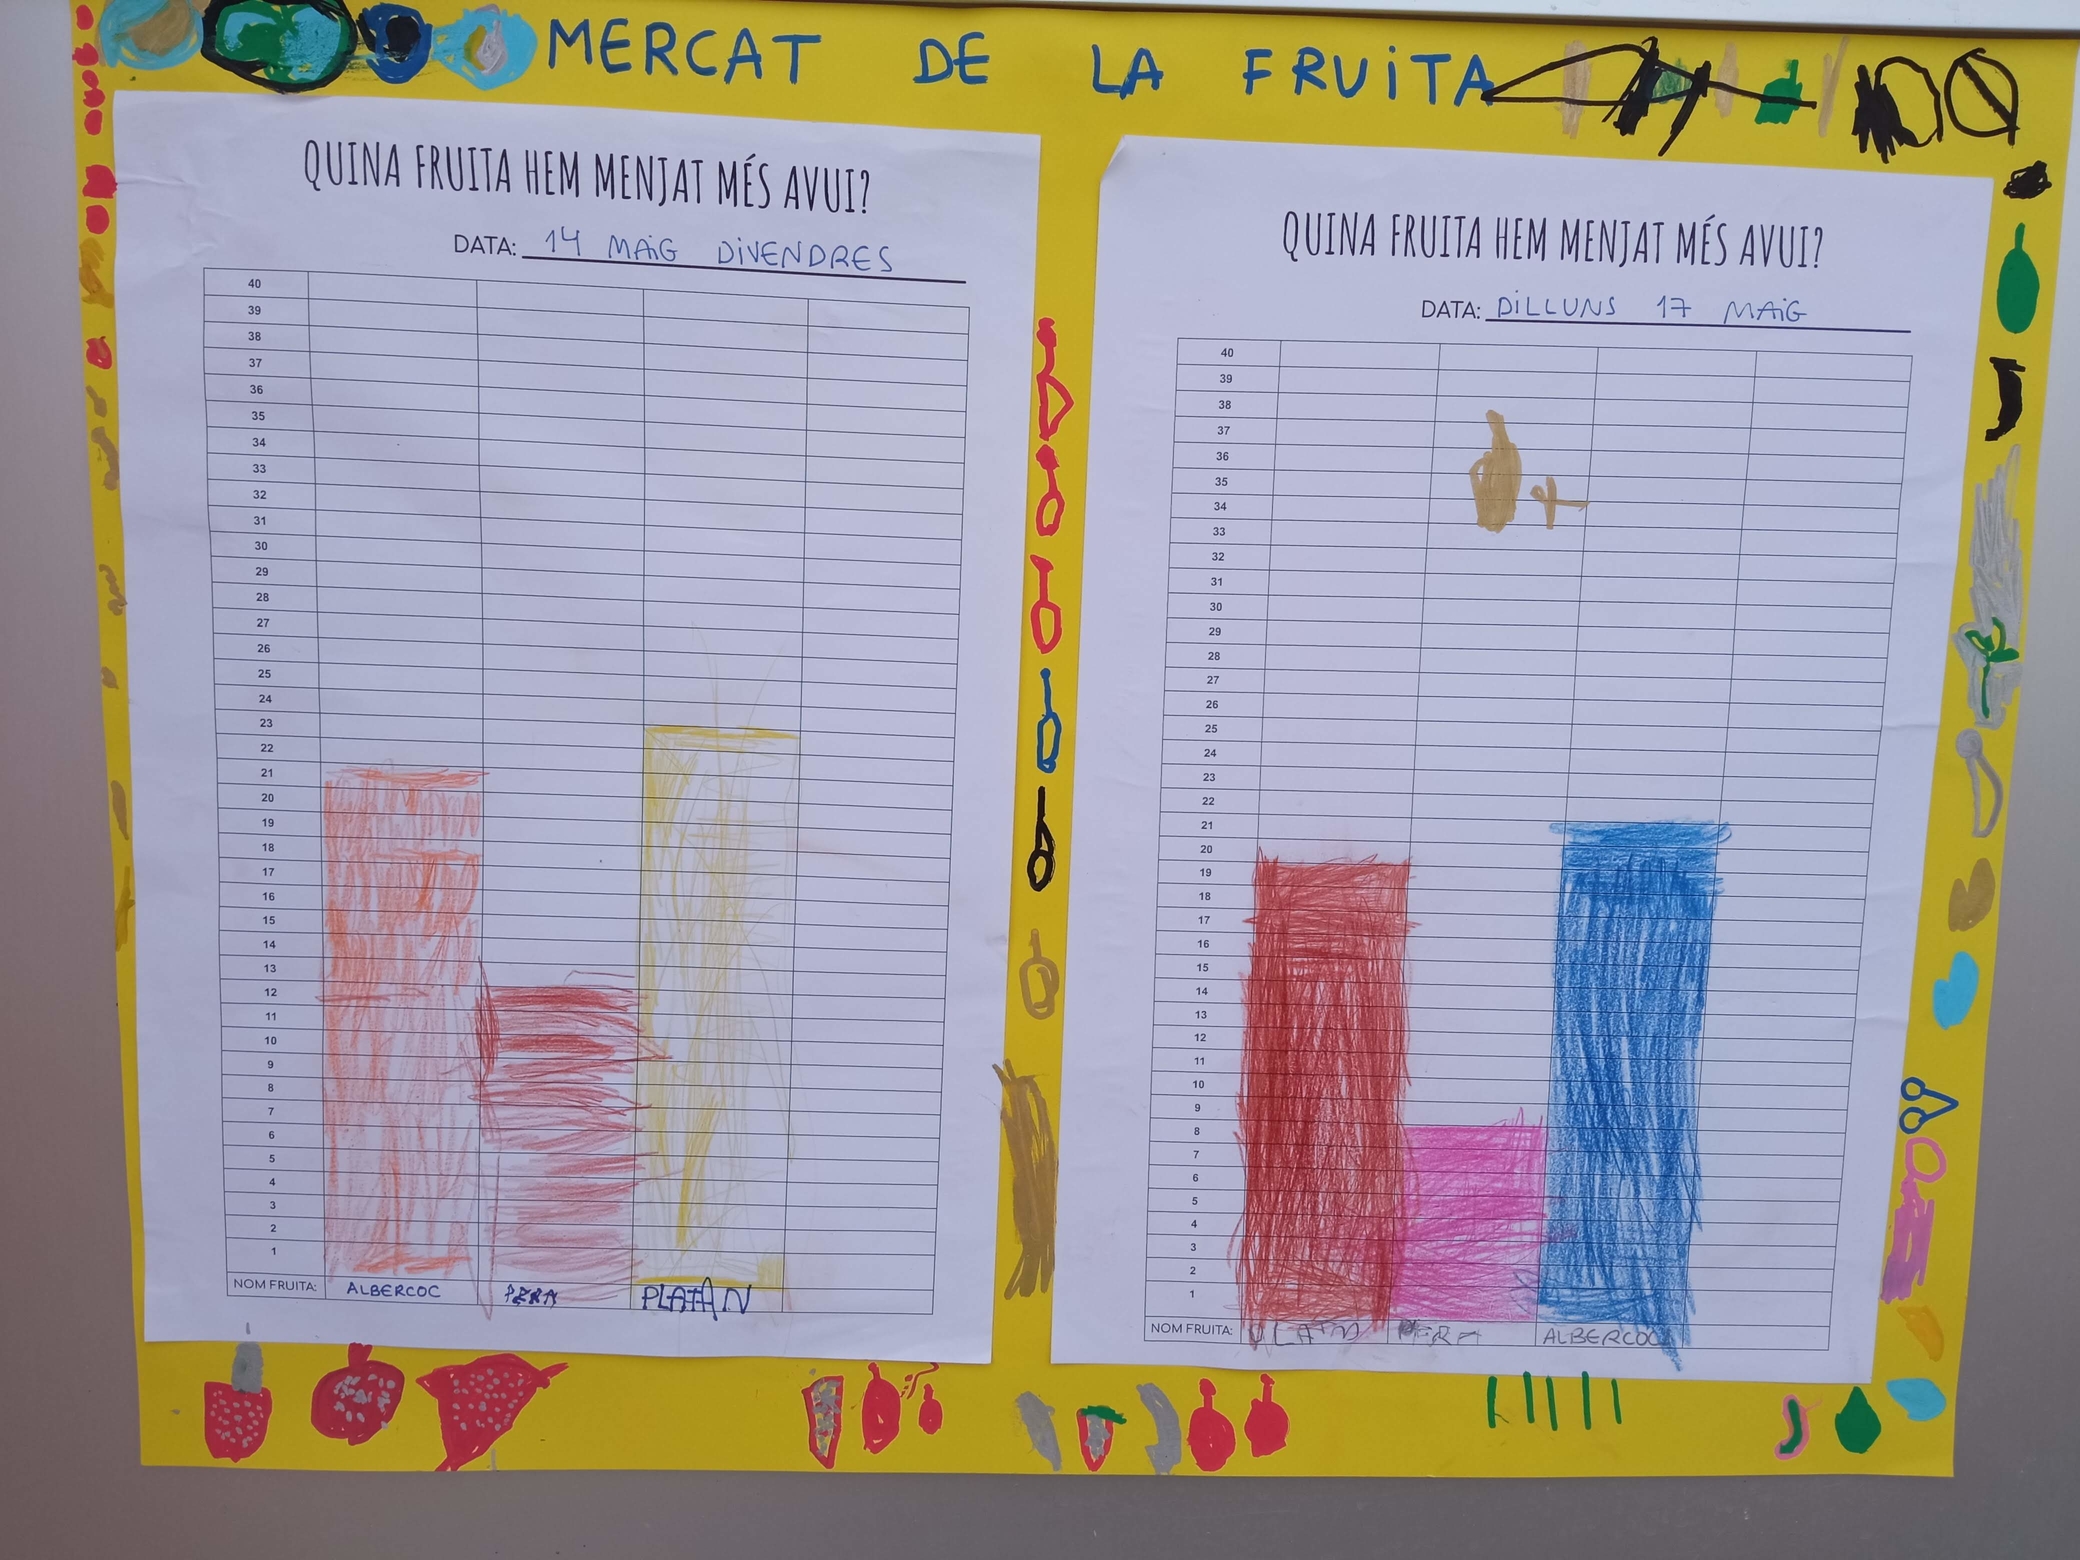 MERCAT DE LA FRUITA
QUINA FRUITA HEM MENJAT MÉS AVUI?
DATA: 14 MAiG DiVENDRES
40
39
38
37
36
35
34
33
32
31
30
29
28
27
26
25
24
23
22
21
20
19
18
17
16
15
14
13
12
11
10
9
8
7
6
5
4
3
2
1
NOM FRUITA: ALBERCOC PERA PLATAN
QUINA FRUITA HEM MENJAT MÉS AVUI?
DATA: DiLLUNS 17 MAiG
40
39
38
37
36
35
34
33
32
31
30
29
28
27
26
25
24
23
22
21
20
19
18
17
16
15
14
13
12
11
10
9
8
7
6
5
4
3
2
1
NOM FRUITA: PERA ALBERCOC